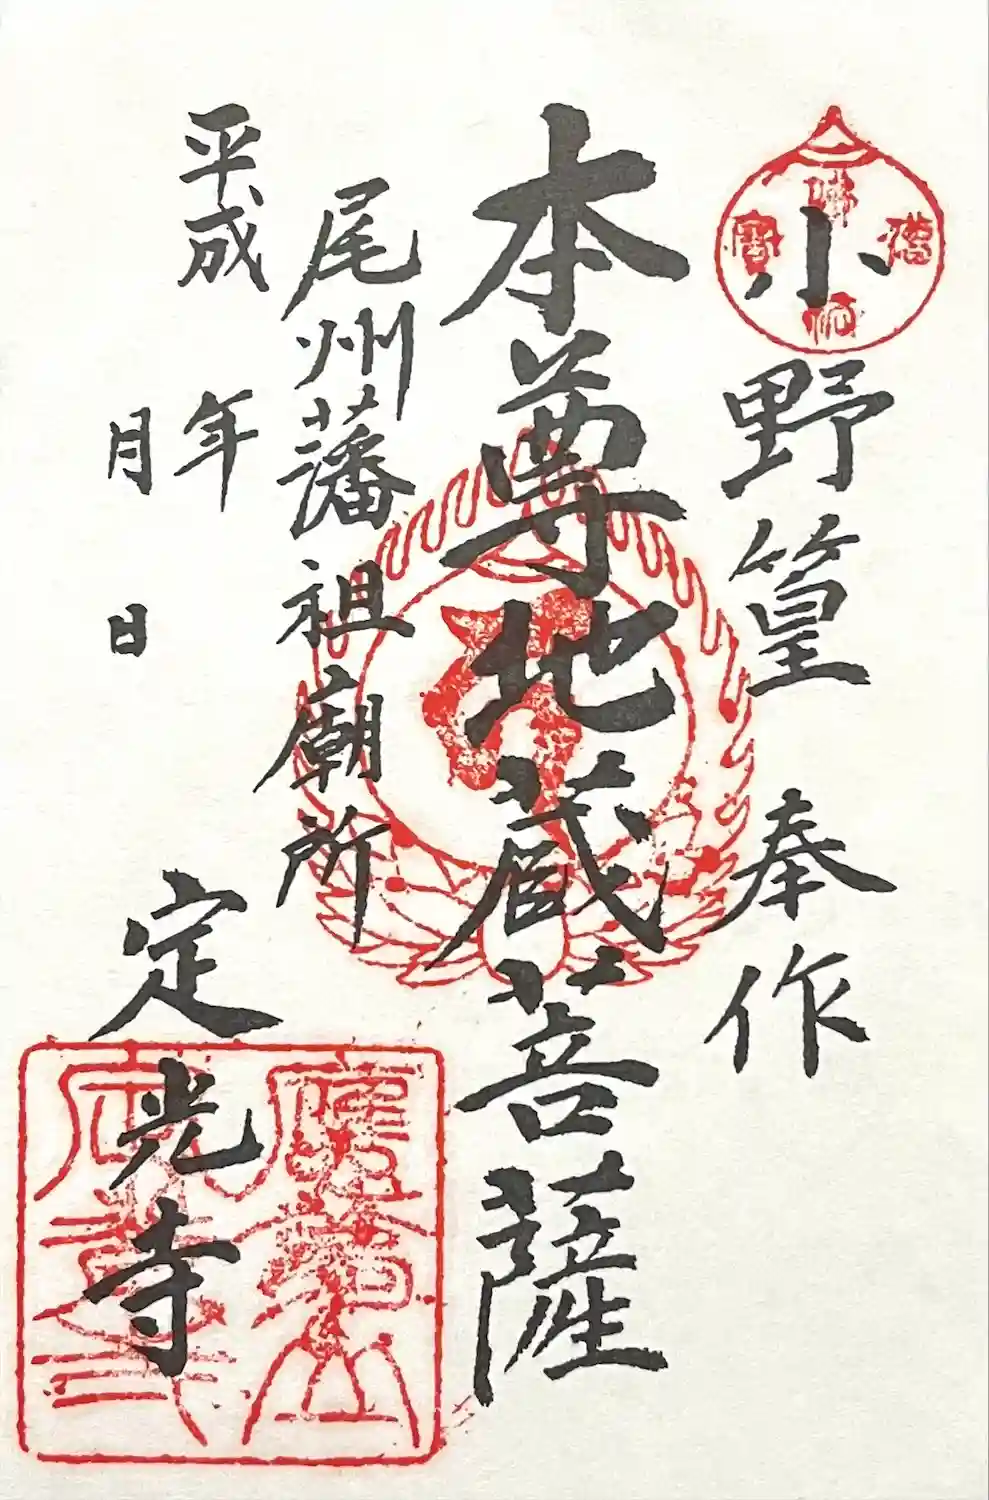 小野篁 奉作
本尊地蔵菩薩
尾州藩祖廟所
平成 年
月 日
定光寺
佛法僧寶